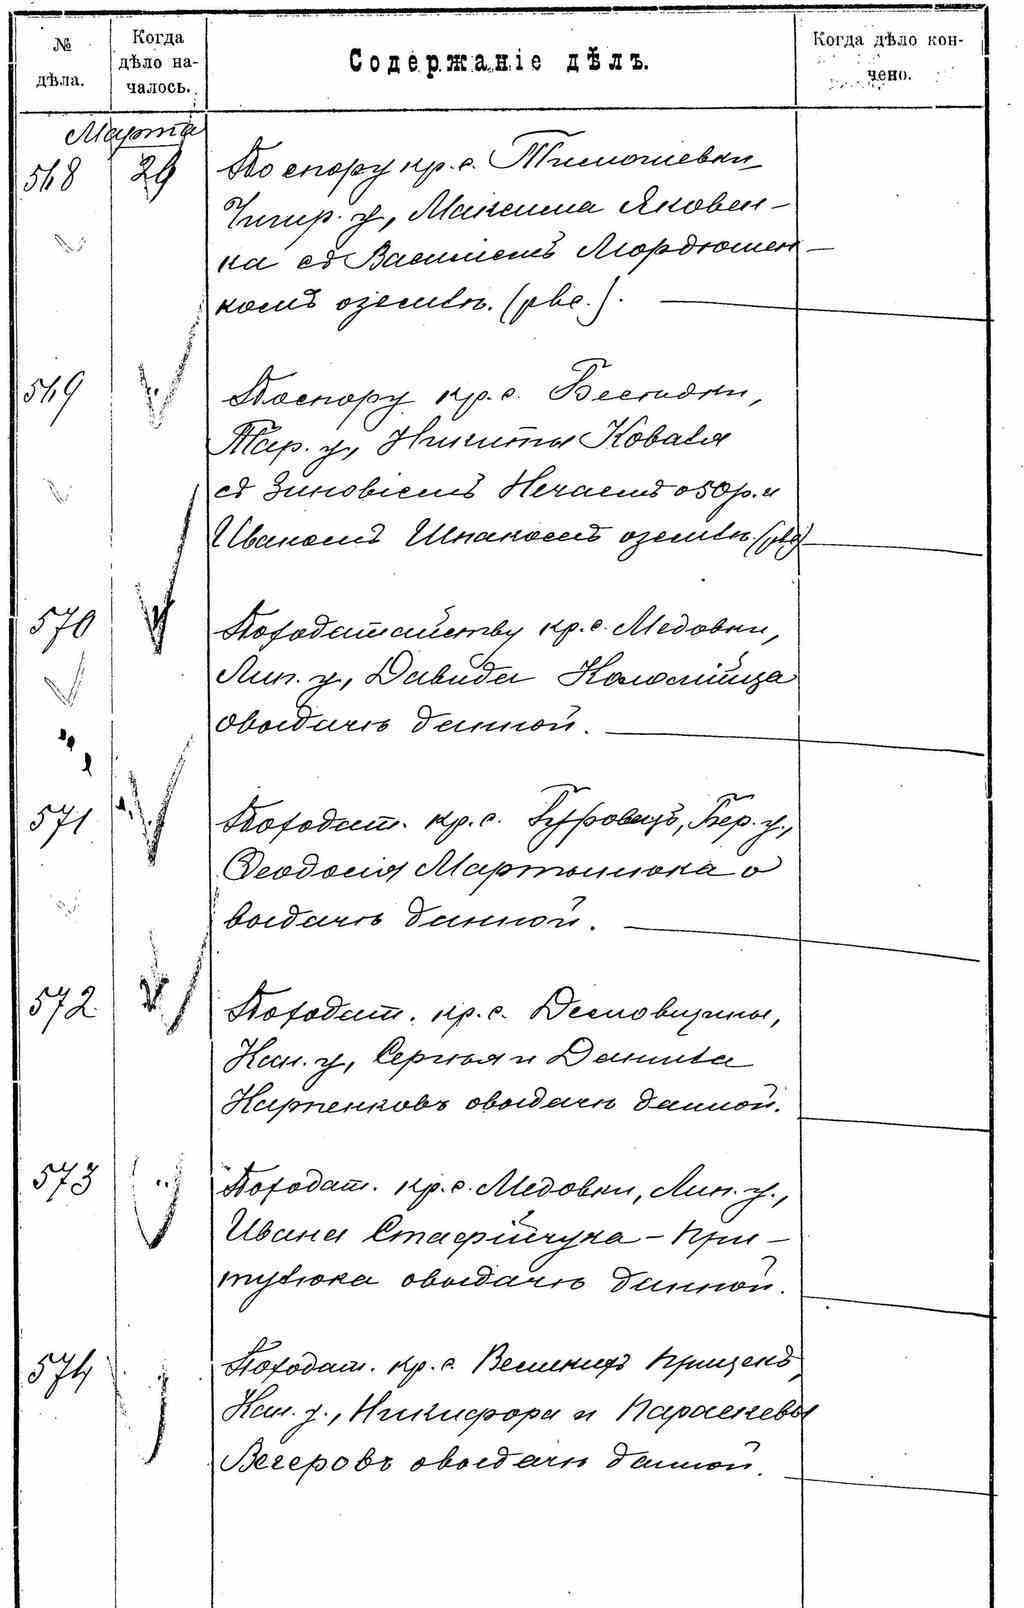 № дѣла.
Когда дѣло началось.
Содержаніе дѣлъ.
Когда дѣло кончено.
Марта
568 29 По спору кр. с. Тимошевки
Чигир. у., Максима Яковен-
ка съ Василіемъ Мордюшен-
комъ о землѣ.
569 По спору кр. с. Беснѣдки,
Тар. у., Никиты Коваля
съ Зиновіемъ Нечаемъ о 50 р. и
Иваномъ Шпакомъ о землѣ.
570 По ходатайству кр. с. Медовки,
Лип. у., Давида Коломійца
о выдачѣ данной.
571 По ходат. кр. с. Гуровецъ, Бер. у.,
Ѳеодосія Мартынюка о
выдачѣ данной.
572 По ходат. кр. с. Демовщины,
Кан. у., Сергѣя и Данила
Карпенковъ о выдачѣ данной.
573 По ходат. кр. с. Медовки, Лип. у.,
Ивана Стафійчука - При-
тулюка о выдачѣ данной.
574 По ходат. кр. с. Великихъ Прицекъ,
Кан. у., Никифора и Параскевы
Вегеровъ о выдачѣ данной.